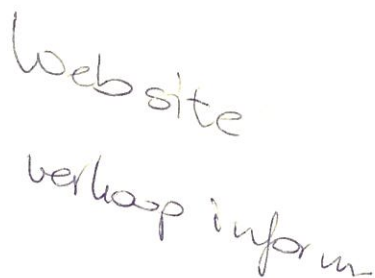 Website
verkoop inform